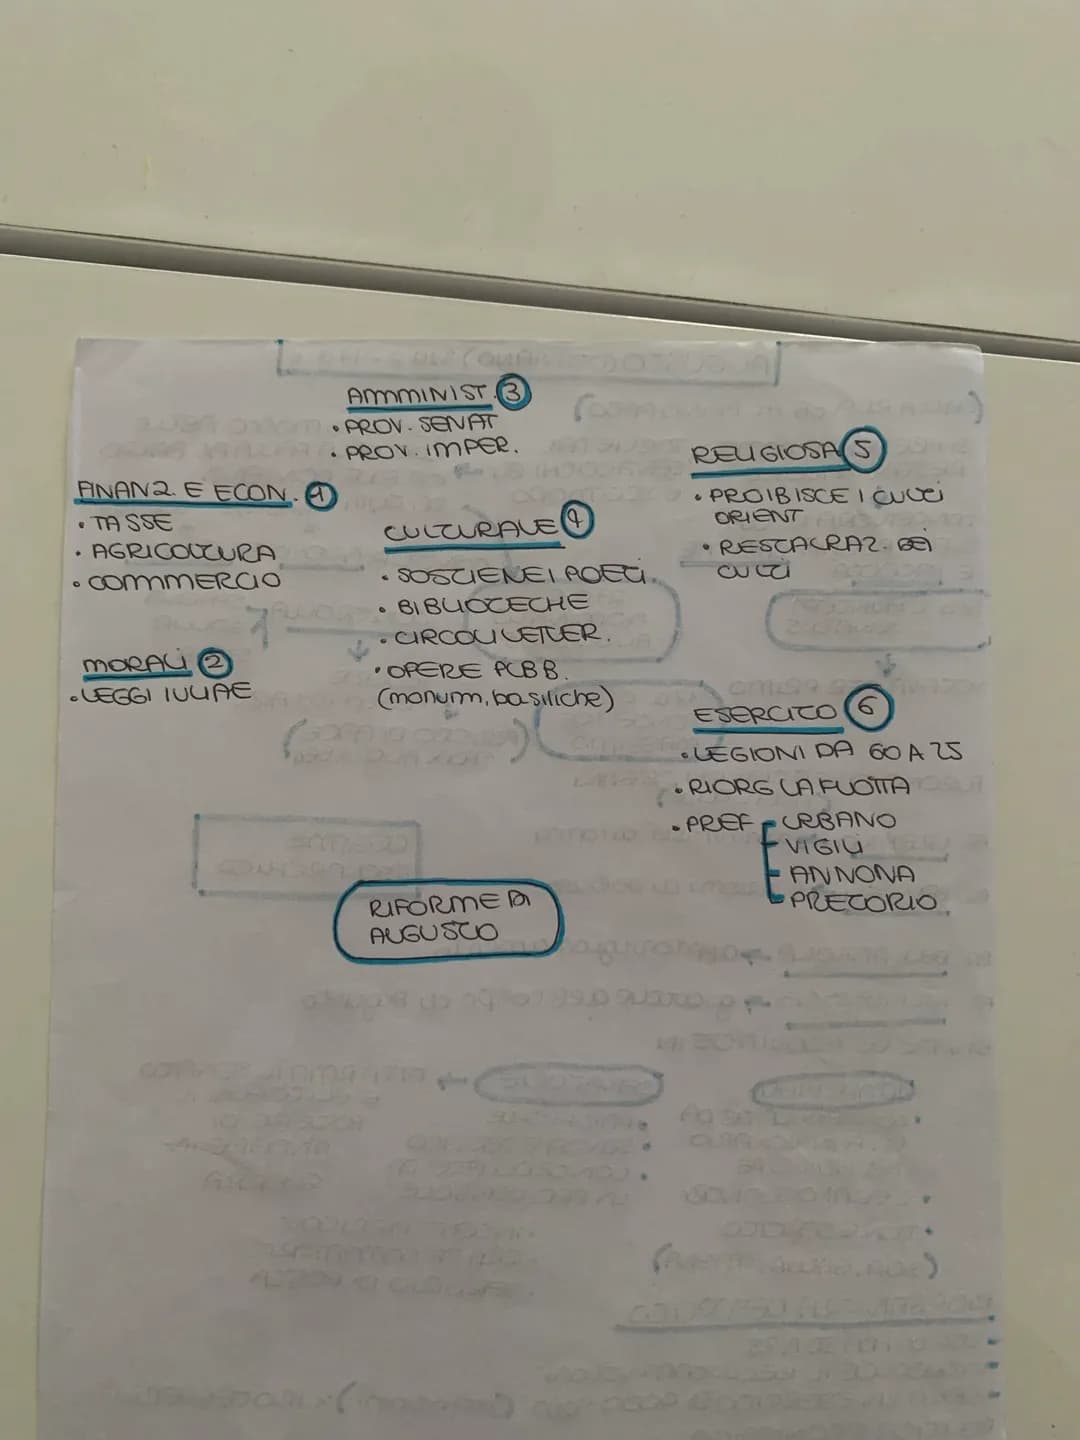 AMMINIST. 3
• PROV. SENAT
• PROV. IMPER.
FINANZ. E ECON. 1
• TASSE
• AGRICOLTURA
• COMMERCIO
MORALI 2
• LEGGI IULIAE
CULTURALE 4
• SOSTIENE I POETI.
• BIBLIOTECHE
• CIRCOLI LETTER.
• OPERE PUBB.
(monum, basiliche)
RELIGIOSA 5
• PROIBISCE I CULTI
ORIENT
• RESTAURAZ. DEI
CULTI
ESERCITO 6
• LEGIONI DA 60 A 25
• RIORG LA FLOTTA
• PREF URBANO
VIGILI
ANNONA
PRETORIO.
RIFORME DI
AUGUSTO